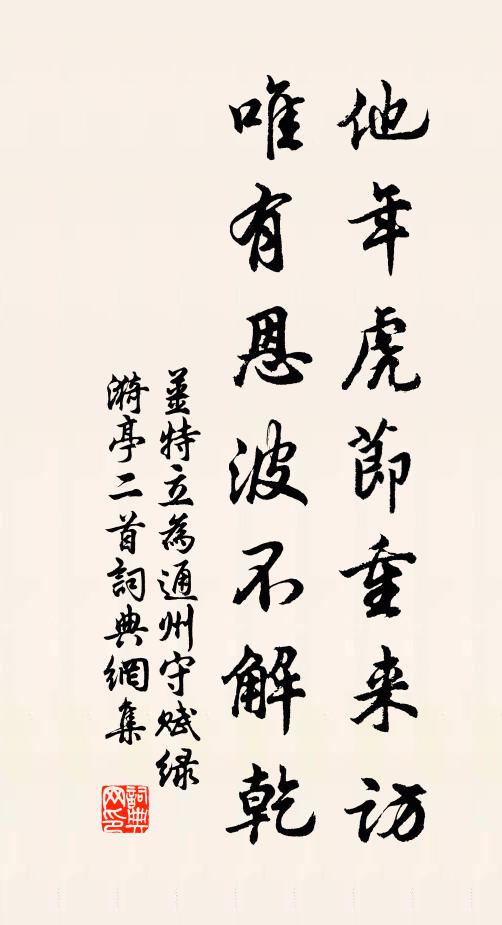 他年虎節重来訪
唯有恩波不解乾
姜特立為通州守賦緑
漪亭二首詞典網集
詞典
网印